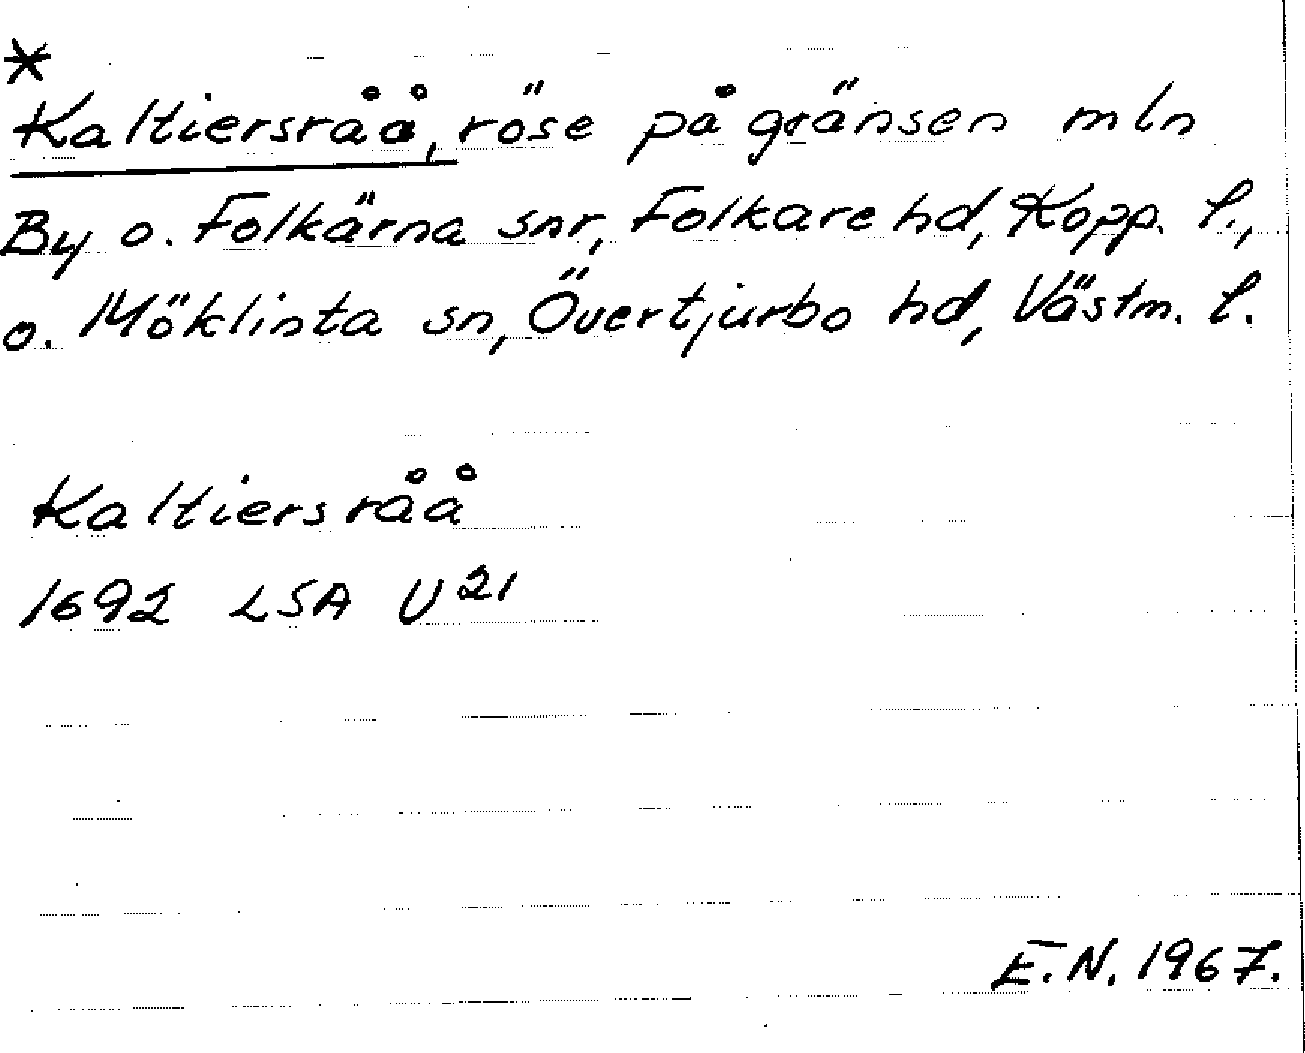 *
Kaltiersråå, röse på gränsen mln
By o. Folkärna snr, Folkare hd, Kopp. l.,
o. Möklinta sn, Övertjurbo hd, Västm. l.
Kaltiersråå
1692 LSA U²¹
E.N. 1967.